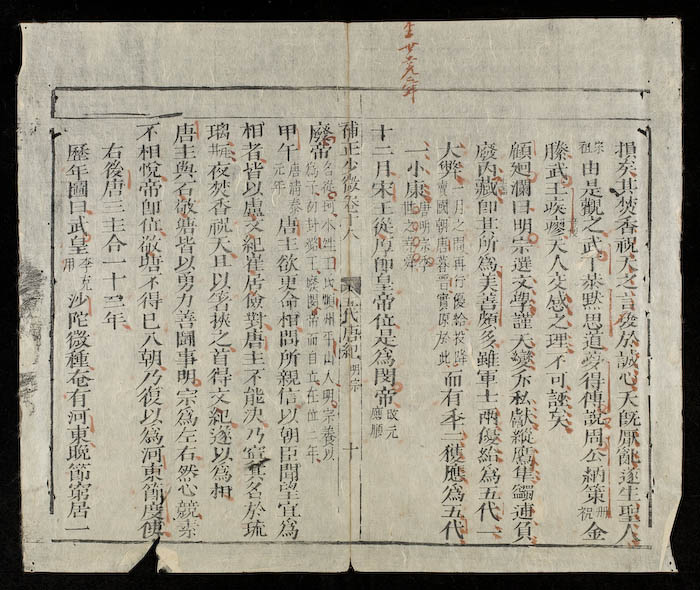 損矣其焚香祝天之言發於誠心天旣厭亂遂生聖人
宗祖由是觀之武丁恭黙思道夢得傅説周公納策冊祝金
縢武王疾瘳天人交感之理不可誣矣
顧廻瀾曰明宗選文學謹天變亦私獻縱鷹隼蠲逋負
廢內藏卽其所爲美善頗多雖軍士兩優給爲五代一
大𡚁二月之間再行優給投降賣國朝唐暮晉實原於此而有年二穫應爲五代
一小康唐明宗五代之
十二月宋王從厚卽皇帝位是爲閔帝改元應順
補正少微卷十八 五代唐紀明宗 十
廢帝名從珂本姓王氏鎭州平山人明宗養以爲子初封潞王廢閔帝而自立在位二年
甲午元年唐清泰唐主欲更命相問所親信以朝臣聞望宜爲
相者皆以盧文紀崔居儉對唐主不能決乃寘其名於琉
璃瓶夜焚香祝天旦以筯挾之首得文紀遂以爲相
唐主與石敬瑭皆以勇力善鬭事明宗爲左右然心競素
不相悅帝卽位敬瑭不得已入朝乃復以爲河東節度使
右後唐三主合一十三年
歷年圖曰武皇李克用沙陀微種奄有河東晚節窮居一